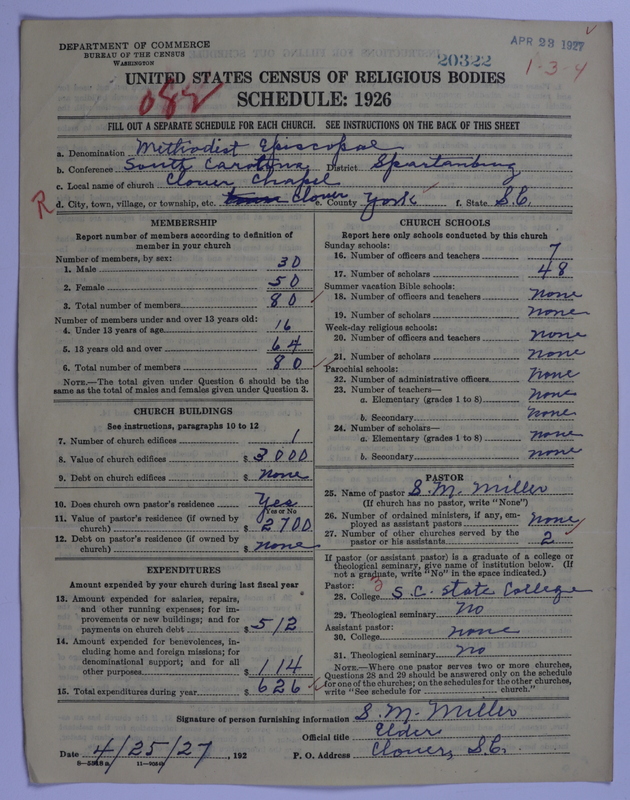 DEPARTMENT OF COMMERCE
BUREAU OF THE CENSUS
WASHINGTON
APR 23 1927
20322
1-3-4
UNITED STATES CENSUS OF RELIGIOUS BODIES
082
SCHEDULE: 1926
FILL OUT A SEPARATE SCHEDULE FOR EACH CHURCH. SEE INSTRUCTIONS ON THE BACK OF THIS SHEET
a. Denomination Methodist Episcopal
b. Conference South Carolina District Spartanburg
c. Local name of church Clover Chapel
R d. City, town, village, or township, etc. Clover e. County York f. State S.C.
MEMBERSHIP
Report number of members according to definition of
member in your church
Number of members, by sex:
1. Male 30
2. Female 50
3. Total number of members 80
Number of members under and over 13 years old:
4. Under 13 years of age 16
5. 13 years old and over 64
6. Total number of members 80
NOTE.—The total given under Question 6 should be the
same as the total of males and females given under Question 3.
CHURCH BUILDINGS
See instructions, paragraphs 10 to 12
7. Number of church edifices 1
8. Value of church edifices $ 3000
9. Debt on church edifices $ none
10. Does church own pastor's residence Yes
Yes or No
11. Value of pastor's residence (if owned by
church) $ 2700
12. Debt on pastor's residence (if owned by
church) $ none
EXPENDITURES
Amount expended by your church during last fiscal year
13. Amount expended for salaries, repairs,
and other running expenses; for im-
provements or new buildings; and for
payments on church debt $ 512
14. Amount expended for benevolences, in-
cluding home and foreign missions; for
denominational support; and for all
other purposes $ 114
15. Total expenditures during year $ 626
CHURCH SCHOOLS
Report here only schools conducted by this church
Sunday schools:
16. Number of officers and teachers 7
17. Number of scholars 48
Summer vacation Bible schools:
18. Number of officers and teachers none
19. Number of scholars none
Week-day religious schools:
20. Number of officers and teachers none
21. Number of scholars none
Parochial schools:
22. Number of administrative officers none
23. Number of teachers—
a. Elementary (grades 1 to 8) none
b. Secondary none
24. Number of scholars—
a. Elementary (grades 1 to 8) none
b. Secondary none
PASTOR
25. Name of pastor S. M. Miller
(If church has no pastor, write "None")
26. Number of ordained ministers, if any, em-
ployed as assistant pastors none
27. Number of other churches served by the
pastor or his assistants 2
If pastor (or assistant pastor) is a graduate of a college or
theological seminary, give name of institution below. (If
not a graduate, write "No" in the space indicated.)
Pastor: 3
28. College S. C. State College
29. Theological seminary No
Assistant pastor:
30. College none
31. Theological seminary No
NOTE.—Where one pastor serves two or more churches,
Questions 28 and 29 should be answered only on the schedule
for one of the churches; on the schedules for the other churches,
write "See schedule for church."
Signature of person furnishing information S. M. Miller
Official title Elder
Date 4/25/27, 192 P. O. Address Clover, S.C.